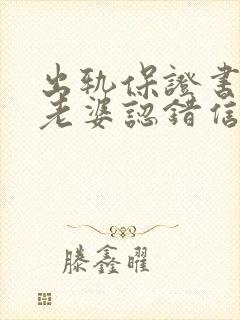 出轨保證書
老婆認錯信
滕鑫曜